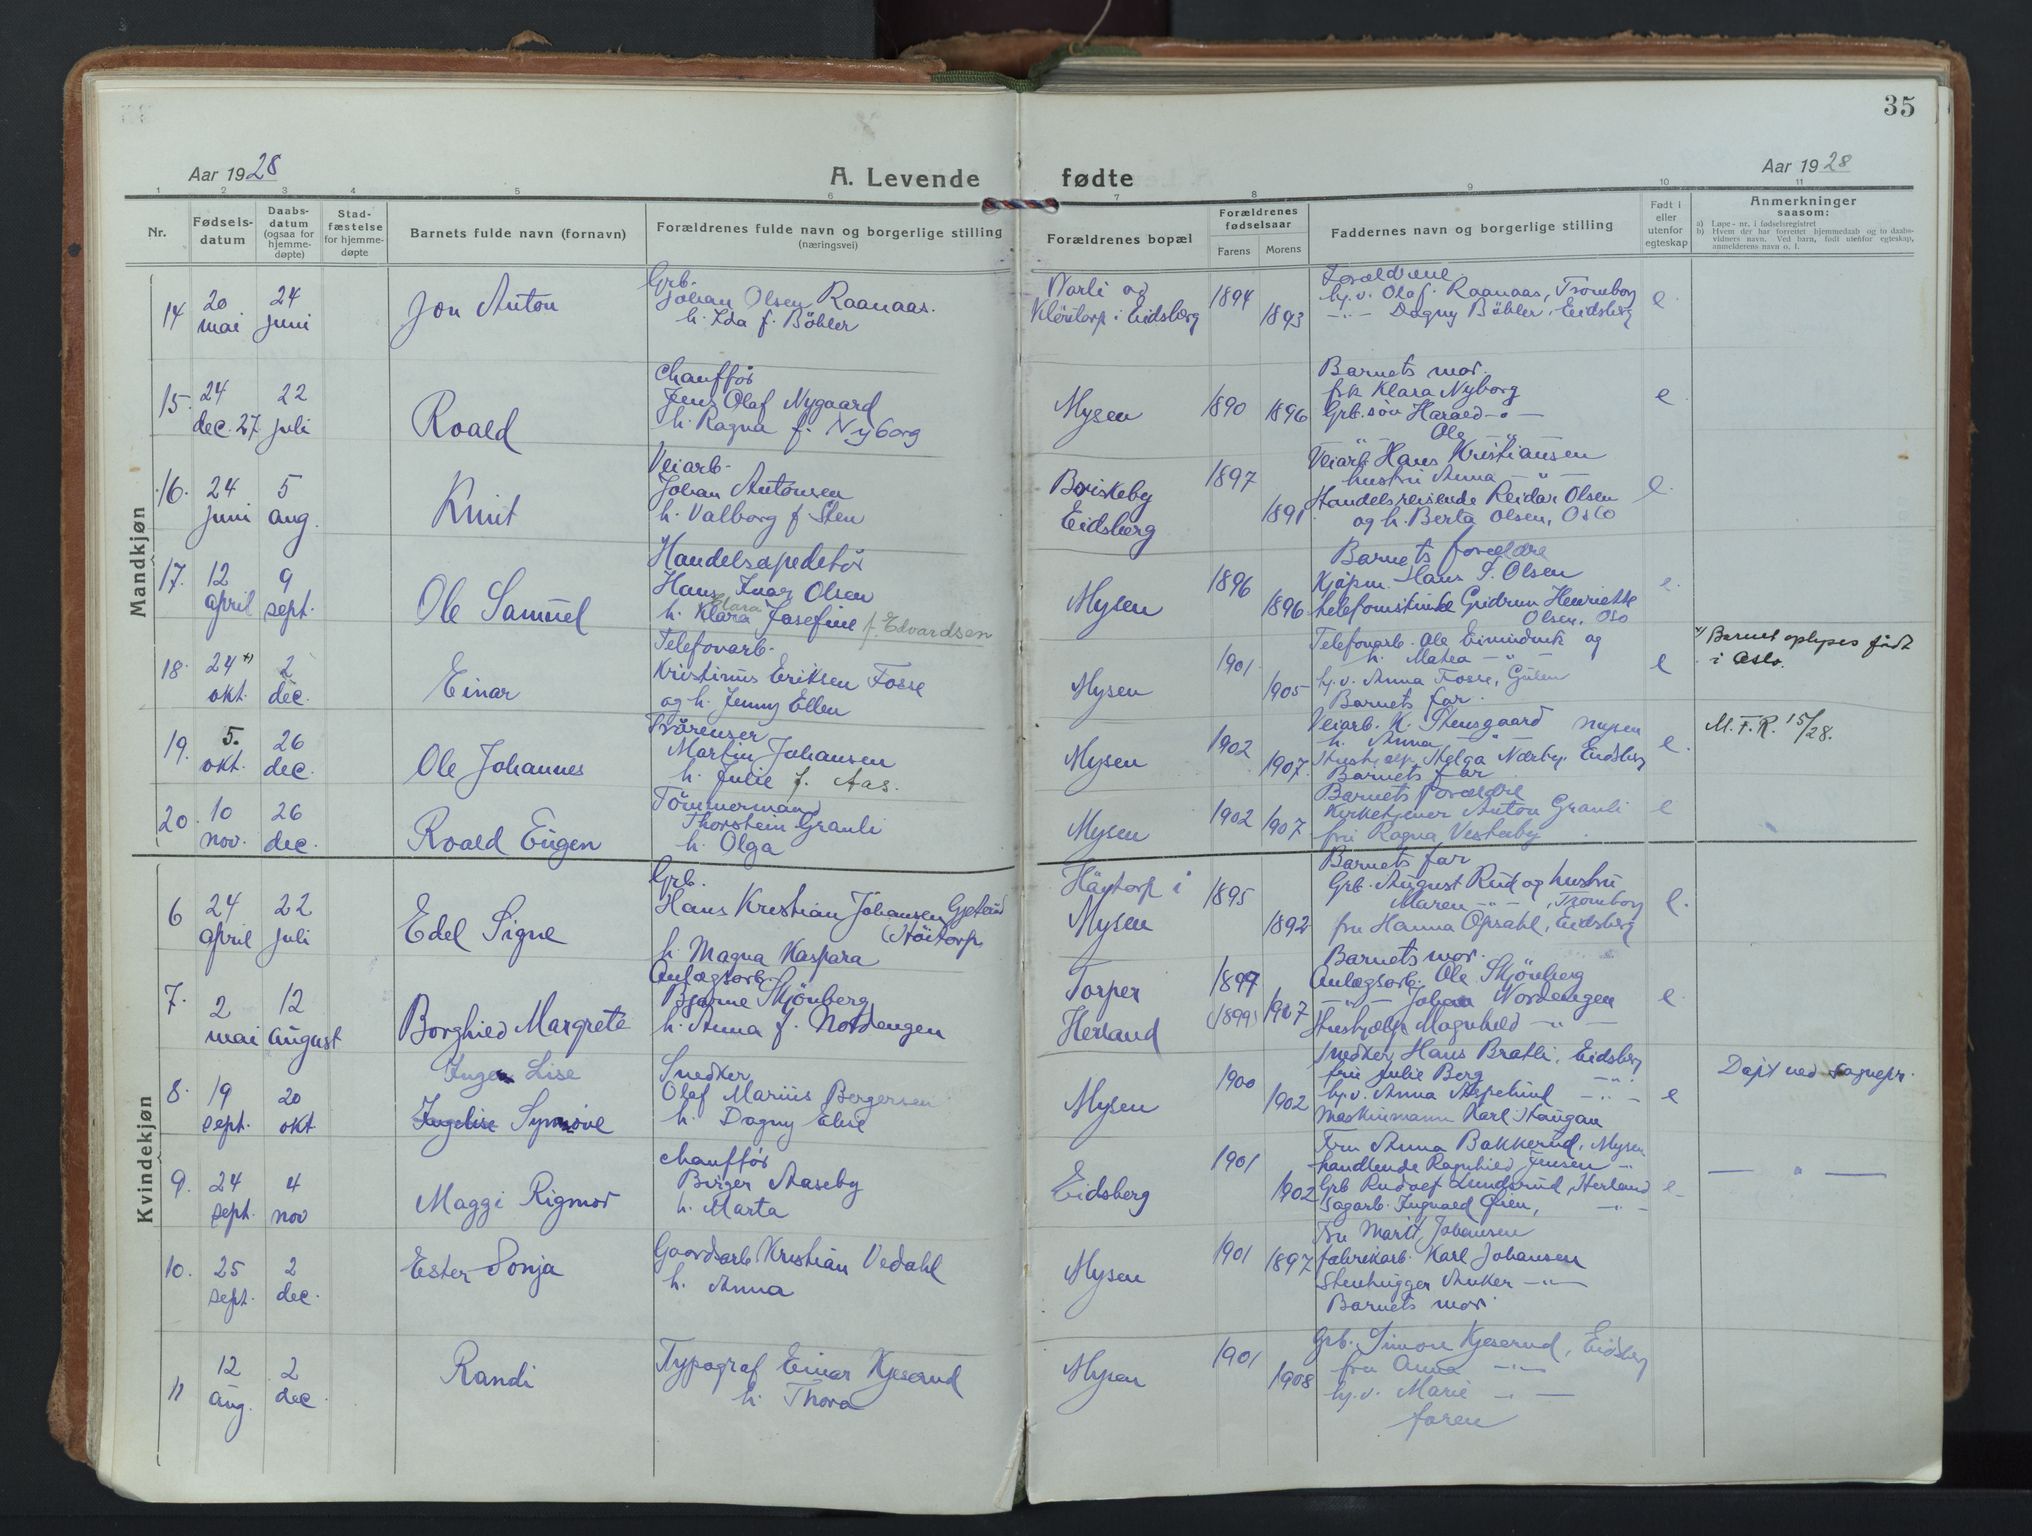 35
Aar 1928
A. Levende fødte
Aar 1928
1 2 3 4 5 6 7 8 9 10 11
Nr.
Fødsels-
datum
Daabs-
datum
(ogsaa for
hjemme-
døpte)
Stad-
fæstelse
for hjemme-
døpte
Barnets fulde navn (fornavn)
Forældrenes fulde navn og borgerlige stilling
(næringsvei)
Forældrenes bopæl
Forældrenes
fødselsaar
Farens Morens
Faddernes navn og borgerlige stilling
Født i
eller
utenfor
egteskap
Anmerkninger
saasom:
a) Løpe-nr. i fødselsregistret
b) Hvem der har forrettet hjemmedaab og to daabs-
vidners navn. Ved barn, født utenfor egteskap,
anmelderens navn o. l.
Mandkjøn
14
20
mai
24
juni
Jon Anton
Grb.
Johan Olsen Raanaas.
h. Ida f. Böhler
i Eidsberg
1894
1893
Forældrene.
hj.v. Olaf Raanaas, Trömborg
-"- Dagny Böhler, Eidsberg
e
15.
24
dec. 27
22
juli
Roald
Chauffør
Jens Olaf Nygaard
h. Ragna f. Nyborg
Mysen
1890
1896
Barnets mor.
frk Klara Nyborg
Grb.søn Harald -"-
Ole
e
16.
24
juni
5
aug.
Knut
Veiarb.
Johan Antonsen
h. Valborg f Sten
Eidsberg
1897
1891
Veiarb. Hans Kristiansen
hustru Anna -"-
Handelsreisende Reidar Olsen
og h. Berta Olsen, Oslo
e.
17.
12
april
9
sept.
Ole Samuel
Hans Olsen
h. Klara Josefine f. Edvardsen
Clara
Mysen
1896
1896
Barnets forældre
Kjøpm. Hans S. Olsen
Gudrun Henriette
Olsen, Oslo
e.
18.
24 +)
okt.
2
dec.
Einar
Telefonarb.
Kristinus Eriksen Fosse
og h. Jenny Ellen
Mysen
1901
1905
Telefonarb. Ole og
h. Matea -"-
hj.v. Anna Fosse, Gulen
Barnets far.
e
+) Barnet oplyses født
i Oslo.
19.
5.
okt.
26
dec.
Ole Johannes
Martin Johansen
h. Julie f. Aas.
Mysen
1902
1907.
Veiarb. K. Stensgaard Mysen
h. Anna -"-
Hushjelp Helga Nærby, Eidsberg
Barnets far
e.
M.F.R. 15/28.
20
10
nov.
26
dec.
Roald Eugen
Tømmermand
Thorstein Granli
h. Olga
Mysen
1902
1907
Barnets forældre
Kirketjener Anton Granli
fru Ragna Vesteby
e
Kvindekjøn
6
24
april
22
juli
Edel Signe
Grb.
Hans Kristian Johansen
h. Magna Kaspara
Høytorp i
Mysen
1895
1892
Barnets far
Grb. August Rud og hustru
Maren -"-, Trömborg
fru Hanna Opsahl, Eidsberg
e.
7.
2
mai
12
august
Borghild Margrete
Anlægsarb.
Bjarne Skjönberg
h. Anna f. Nordengen
Torper
Herland
1897
(1899)
1907
Barnets mor.
Anlægsarb. Ole Skjönberg
-"- Johan Nordengen
Hushjælp Magnhild -"-
e
8.
19
sept.
20
okt.
Inger Lise
Ingelise Synnøve
Snedker
Olaf Marius Bergersen
h. Dagny Elise
Mysen
1900
1902
Snedker Hans Bratli, Eidsberg
fru Julie Berg -"-
hj.v. Anna -"-
Maskinmann Karl Haugan
e
Døpt ved sognepr.
9.
24
sept.
4
nov
Maggi Rigmor
Chauffør
Birger Aaseby
h. Marta
Eidsberg
1901
1902
Fru Anna Bakkerud, Mysen
handlende Ragnhild Jensen -"-
Grb Rudolf Lundsrud, Herland
Sagarb. Ingvald Øien, -"-
e
-"-
10.
25
sept.
2
dec.
Ester Sonja
Gaardsarb. Kristian Vedahl
h. Anna
Mysen
1901
1897
Fru Marit Johansen
fabrikarb. Karl Johansen
Stenhugger Anker -"-
Barnets mor
11
12
aug.
2
dec
Randi
Typograf Einar Kjeserud
h. Thora
Mysen
1901
1908
Grb. Simon Kjeserud, Eidsberg
fru Anna -"-
hj.v. Marie -"-
faren